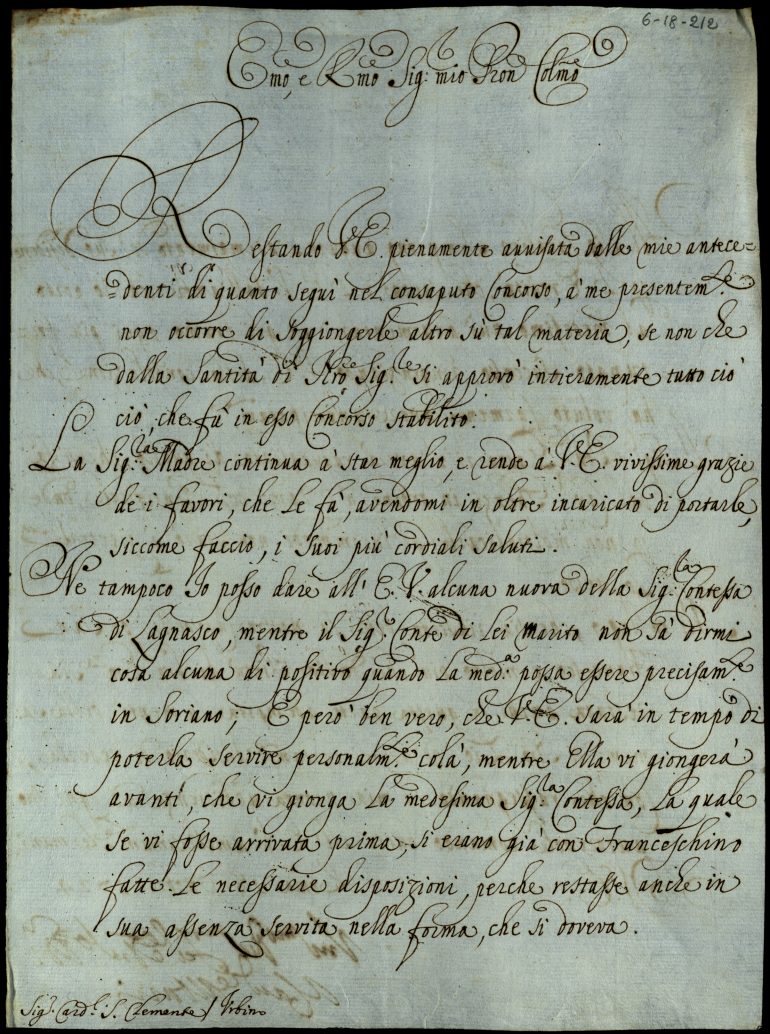 6-18-212
Em͞o, e Rm͞o Sig.r mio Pron͞ Colm͞o
Restando V.E. pienamente avvisata dalle mie antece=
=denti di quanto seguì nel consaputo Concorso, à me presentem.te
non occorre di soggiongerle altro sù tal materia, se non che
dalla Santità di Nro͞ Sig.re si approvò intieramente tutto ciò
ciò, che fù in esso Concorso stabilito.
La Sig.ra Madre continua à star meglio, e rende à V.E. vivissime grazie
de i favori, che Le fà, avendomi in oltre incaricato di portarle,
siccome faccio, i suoi più cordiali saluti.
Nè tampoco Io posso dare all' E.V. alcuna nuova della Sig.ra Contessa
di Lagnasco, mentre il Sig.r Conte di Lei Marito non sà dirmi
cosa alcuna di positivo quando la med.a possa essere precisam.te
in Soriano; E però ben vero, che V.E. sarà in tempo di
poterla servire personalm.te colà, mentre Ella vi giongerà
avanti, che vi gionga La medesima Sig.ra Contessa, La quale
se vi fosse arrivata prima, si erano già con Franceschino
fatte Le necessarie disposizioni, perche restasse anche in
sua assenza servita nella forma, che si doveva.
Sig.r Card.l S. Clemente / Urbino